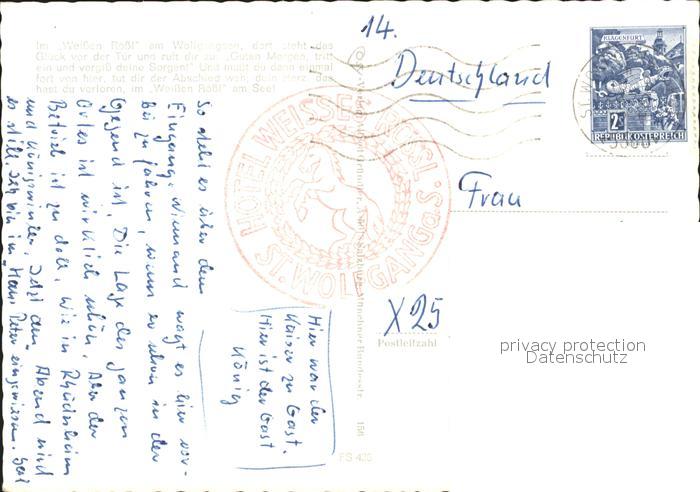 Im „Weißen Rößl" am Wolfgangsee, dort steht das
Glück vor der Tür und ruft dir zu: „Guten Morgen, tritt
ein und vergiß deine Sorgen!" Und mußt du dann einmal
fort von hier, tut dir der Abschied weh; dein Herz, das
hast du verloren im „Weißen Rößl" am See!
14.
Deutschland
KLAGENFURT
2S
REPUBLIK ÖSTERREICH
ST. W
HOTEL WEISSES RÖSSL
ST. WOLFGANG
Frau
X 25
Postleitzahl
So steht es über dem
Eingang. Niemand wagt es hier vor-
bei zu fahren, wenn er schon in der
Gegend ist. Die Lage des ganzen
Ortes ist wirklich schön. Aber der
Betrieb ist zu doll, wie in Rüdesheim
und Königswinter. Jetzt am Abend wird
es still. Ich bin im Haus Peter
Hier war der
Kaiser zu Gast.
Hier ist der Gast
König
156
FS 435
privacy protection
Datenschutz